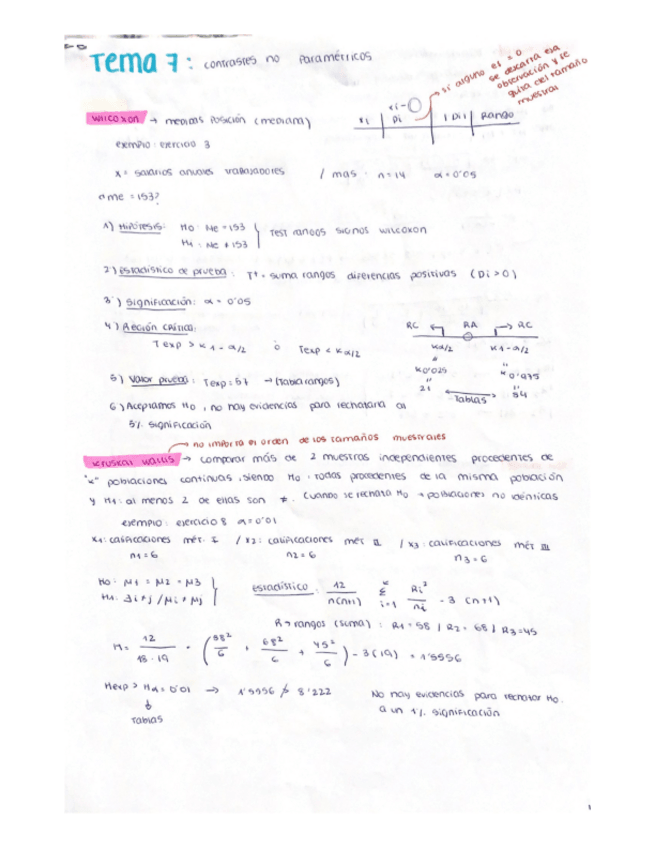 Tema 7: contrastes no paramétricos
si alguno es = 0
se descarta esa
observación y se
quita del tamaño
muestral
Wilcoxon → medidas posición (mediana)
xi - 0
xi | Di | |Di| | Rango
ejemplo: ejercicio 3
x = salarios anuales trabajadores / mas: n=14 α=0'05
¿me = 153?
1) Hipótesis: H0: Me = 153
H1: Me ≠ 153
Test rangos signos Wilcoxon
2) Estadístico de prueba: T+ = suma rangos diferencias positivas (Di > 0)
3) Significación: α = 0'05
4) Región crítica:
RC RA RC
T exp > K1-α/2 ó Texp < Kα/2
Kα/2 K1-α/2
K0'025 K0'975
21 ← Tablas → 84
5) Valor prueba: Texp = 57 → (Tabla rangos)
6) Aceptamos H0, no hay evidencias para rechazarla al
5% significación
→ no importa el orden de los tamaños muestrales
Kruskal Wallis → comparar más de 2 muestras independientes procedentes de
"K" poblaciones continuas, siendo H0: todas procedentes de la misma población
y H1: al menos 2 de ellas son ≠. Cuando se rechaza H0 → poblaciones no idénticas
ejemplo: ejercicio 8 α=0'01
x1: calificaciones mét. I / x2: calificaciones mét II / x3: calificaciones mét III
n1=6 n2=6 n3=6
H0: μ1 = μ2 = μ3
H1: ∃ i≠j / μi ≠ μj
estadístico: 12/n(n+1) Σ i=1 K Ri²/ni - 3 (n+1)
R → rangos (suma): R1=58 / R2=68 / R3=45
H = 12/18·19 · (58²/6 + 68²/6 + 45²/6) - 3(19) = 1'5556
Hexp > Hα=0'01 → 1'5556 ≯ 8'222
No hay evidencias para rechazar H0.
a un 1% significación
Tablas
1